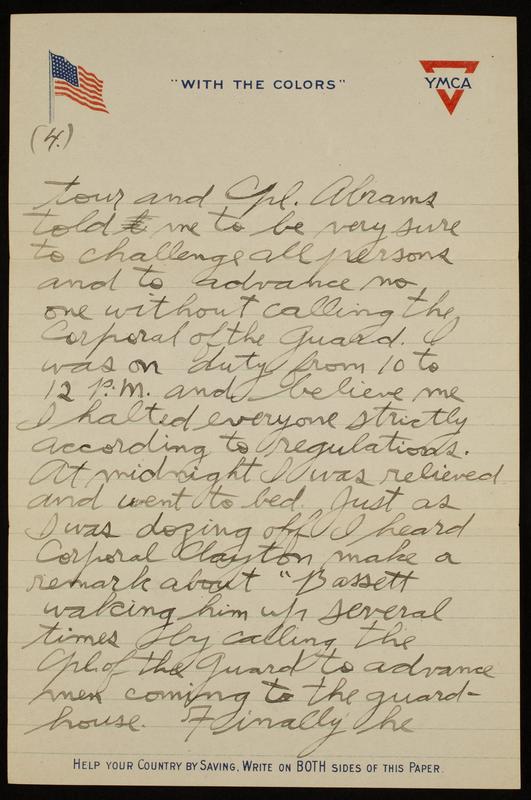 "WITH THE COLORS"
YMCA
(4.)
tour and Cpl. Abrams
told me to be very sure
to challenge all persons
and to advance no
one without calling the
Corporal of the Guard. I
was on duty from 10 to
12 P.M. and believe me
I halted everyone strictly
according to regulations.
At midnight I was relieved
and went to bed. Just as
I was dozing off I heard
Corporal Clayton make a
remark about "Bassett
waking him up several
times by calling the
Cpl. of the Guard to advance
men coming to the guard-
house. Finally he
HELP YOUR COUNTRY BY SAVING. WRITE ON BOTH SIDES OF THIS PAPER.